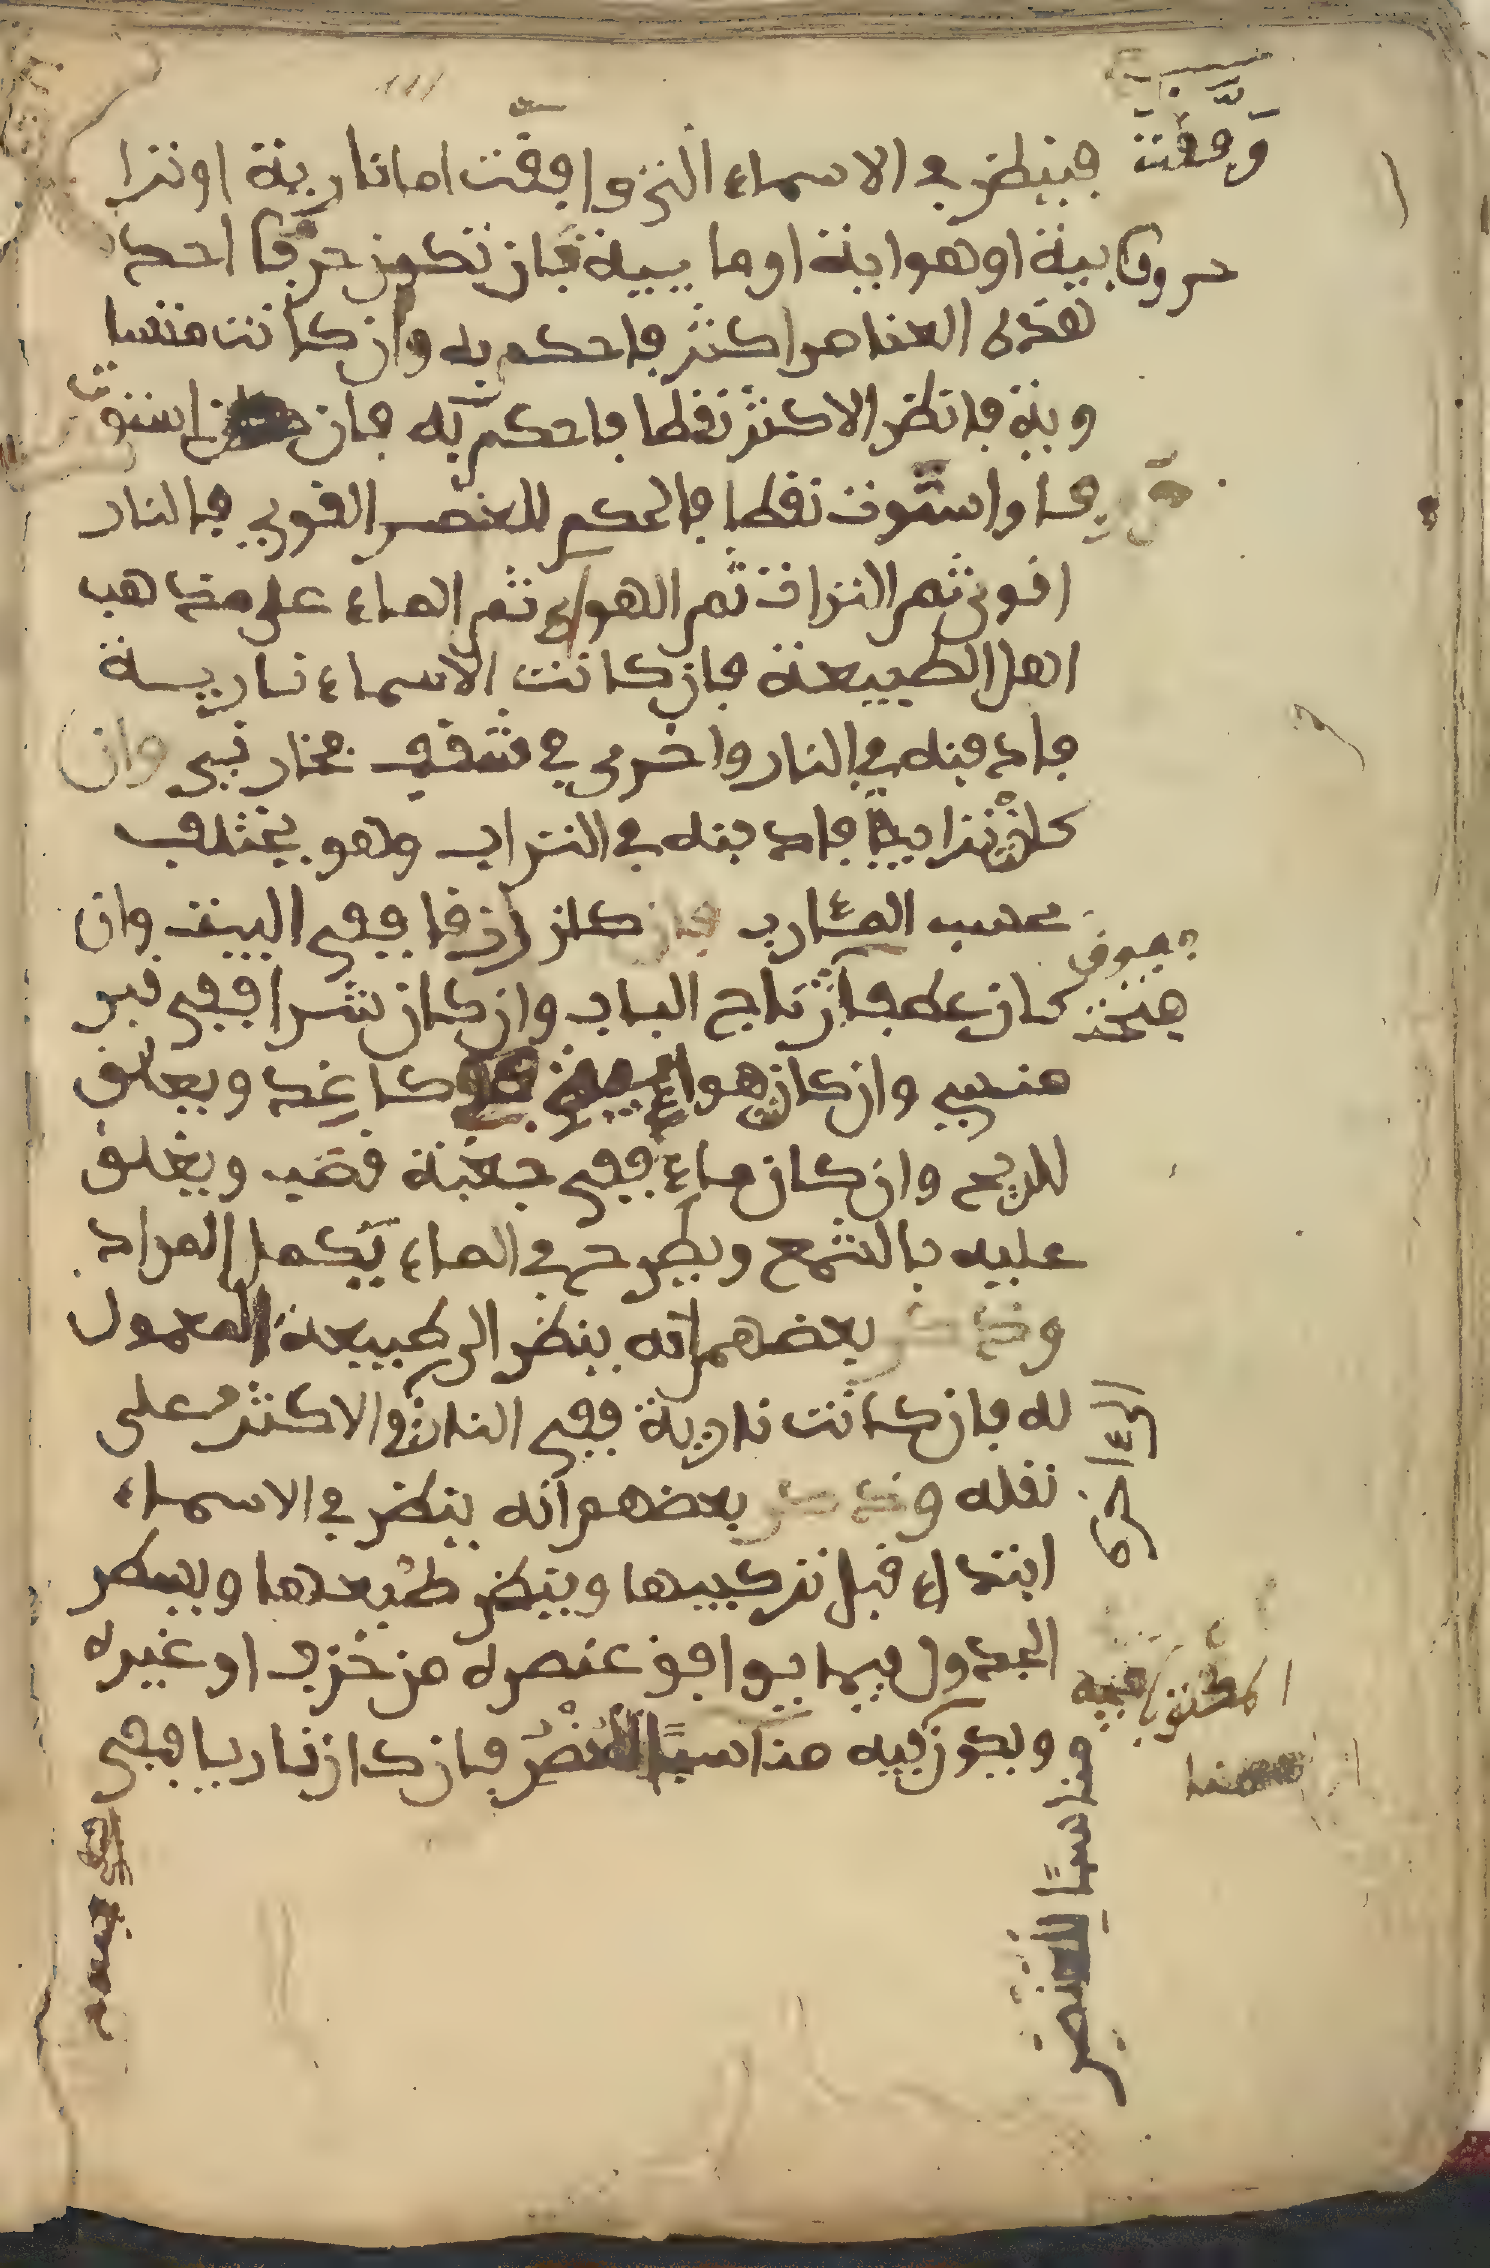 وقفت
فينظر في الاسماء التي وافقت اما نارية او ترا
حروفا
بية او هوايية او مايية فان تكون حرفا احد
هذه العناصر اكثر فاحكم به وان كانت متسا
وية فانظر الاكثر نقطا فاحكم به فان استوت
حرفا واستوت نقطا فالحكم للعنصر القوي فالنار
اقوى ثم التراب ثم الهواء ثم الماء على مذاهب
اهل الطبيعة فان كانت الاسماء نارية
فادفنه في النار واخرى في شقف فخار نيى وان
كان ترابيا فادفنه في التراب وهو يختلف
بحسب المئارب فان كان رزقا ففي البيت وان
كان عطفا تاج الباب وان كان شرا ففي قبر
منسي وان كان هواء كاغد ويعلق
للريح وان كان ماء ففي جعبة قصب ويغلق
عليه بالشمع ويطرح في الماء يكمل المراد
وذكر بعضهم انه ينظر الى طبيعة المعمول
له فان كانت نارية ففي النار والاكثر على
نقله وذكر بعضهم انه ينظر في الاسماء
ابتداء قبل تركيبها وينظر طبعها ويسطر
الجدول فيما يوافق عنصره من خزف او غيره
المكتوب فيه
ويكون فيه مناسبا للعنصر فان كان ناريا ففي
مناسبا للعنصر